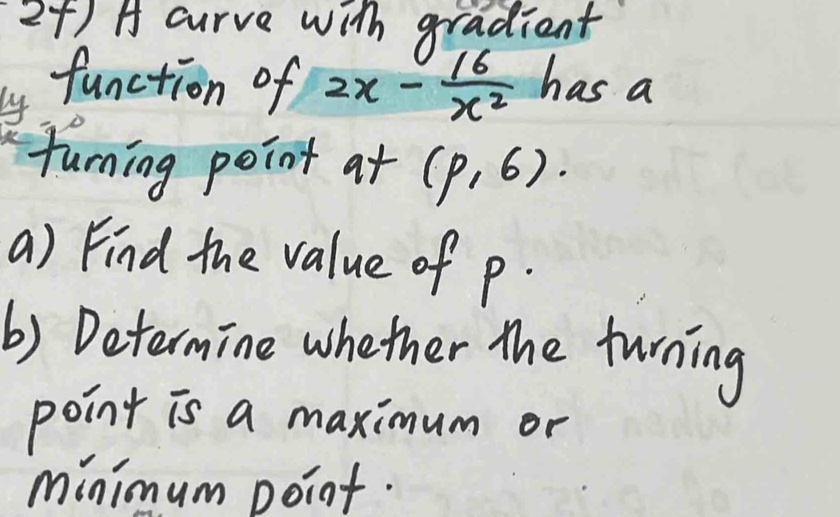 27) A curve with gradient
function of 2x - 16/x² has a
dy/dx = 0
turning point at (p, 6).
a) Find the value of p.
b) Determine whether the turning
point is a maximum or
minimum point.